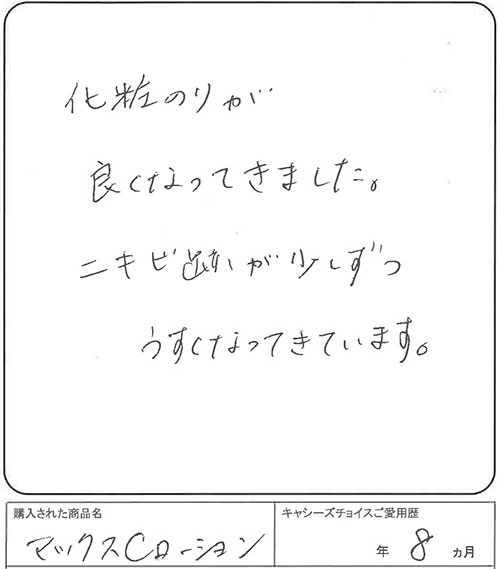 化粧のりが
良くなってきました。
ニキビ跡が少しずつ
うすくなってきています。
購入された商品名
キャシーズチョイスご愛用歴
マックスCローション
年 8 ヵ月